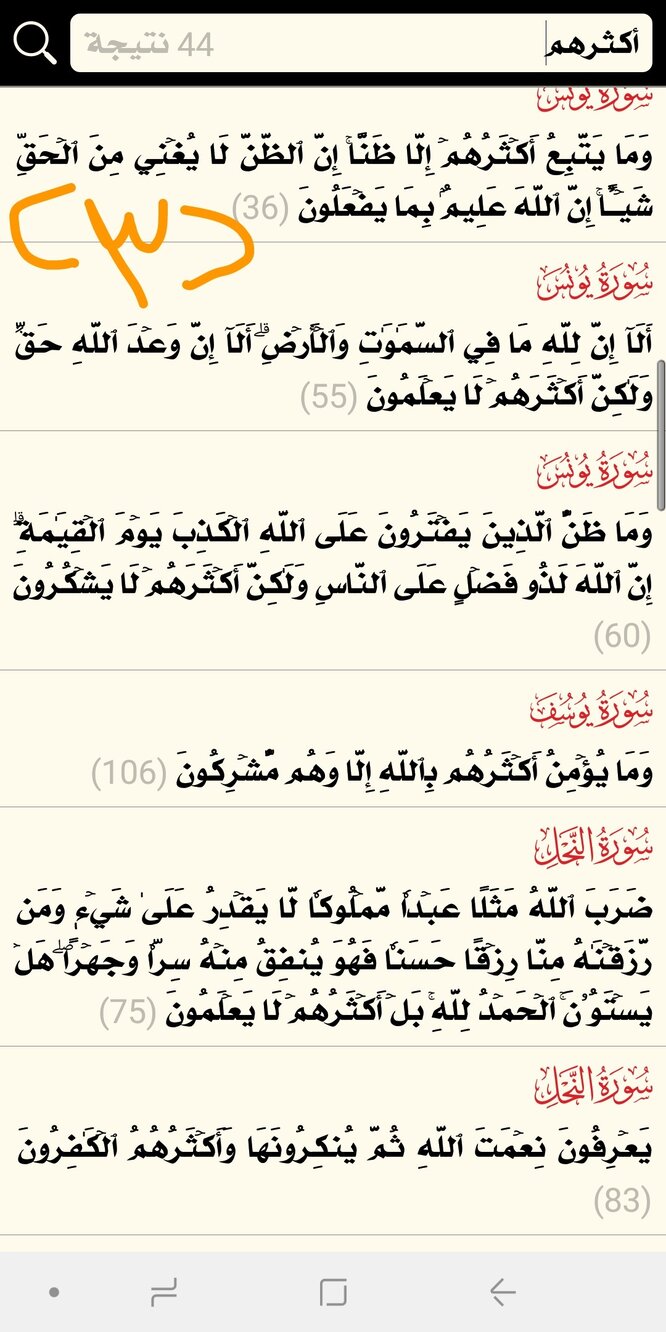 أكثرهم
44 نتيجة
سُورَةُ يُونُسَ
وَمَا يَتَّبِعُ أَكۡثَرُهُمۡ إِلَّا ظَنًّاۚ إِنَّ ٱلظَّنَّ لَا يُغۡنِي مِنَ ٱلۡحَقِّ
شَيۡـًٔاۚ إِنَّ ٱللَّهَ عَلِيمُۢ بِمَا يَفۡعَلُونَ (36)
(٣)
سُورَةُ يُونُسَ
أَلَآ إِنَّ لِلَّهِ مَا فِي ٱلسَّمَٰوَٰتِ وَٱلۡأَرۡضِۗ أَلَآ إِنَّ وَعۡدَ ٱللَّهِ حَقّٞ
وَلَٰكِنَّ أَكۡثَرَهُمۡ لَا يَعۡلَمُونَ (55)
سُورَةُ يُونُسَ
وَمَا ظَنُّ ٱلَّذِينَ يَفۡتَرُونَ عَلَى ٱللَّهِ ٱلۡكَذِبَ يَوۡمَ ٱلۡقِيَٰمَةِۗ
إِنَّ ٱللَّهَ لَذُو فَضۡلٍ عَلَى ٱلنَّاسِ وَلَٰكِنَّ أَكۡثَرَهُمۡ لَا يَشۡكُرُونَ
(60)
سُورَةُ يُوسُفَ
وَمَا يُؤۡمِنُ أَكۡثَرُهُم بِٱللَّهِ إِلَّا وَهُم مُّشۡرِكُونَ (106)
سُورَةُ النَّحۡلِ
ضَرَبَ ٱللَّهُ مَثَلًا عَبۡدٗا مَّمۡلُوكٗا لَّا يَقۡدِرُ عَلَىٰ شَيۡءٖ وَمَن
رَّزَقۡنَٰهُ مِنَّا رِزۡقًا حَسَنٗا فَهُوَ يُنفِقُ مِنۡهُ سِرّٗا وَجَهۡرًاۖ هَلۡ
يَسۡتَوُۥنَۚ ٱلۡحَمۡدُ لِلَّهِۚ بَلۡ أَكۡثَرُهُمۡ لَا يَعۡلَمُونَ (75)
سُورَةُ النَّحۡلِ
يَعۡرِفُونَ نِعۡمَتَ ٱللَّهِ ثُمَّ يُنكِرُونَهَا وَأَكۡثَرُهُمُ ٱلۡكَٰفِرُونَ
(83)